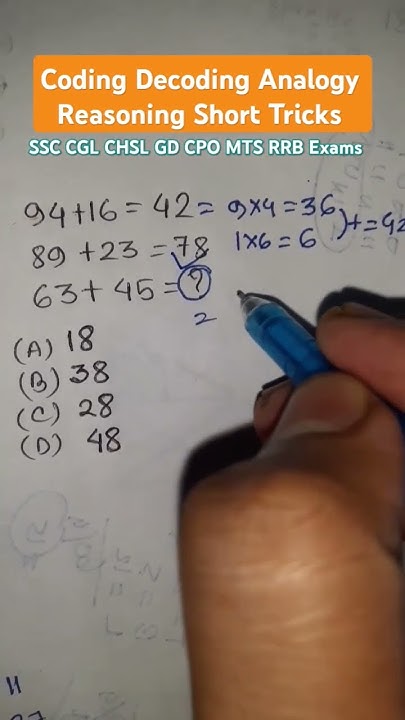 Coding Decoding Analogy
Reasoning Short Tricks
SSC CGL CHSL GD CPO MTS RRB Exams
94+16 = 42 = 9×4=36
1×6=6 )+=42
89+23=78
63+45=?
2
(A) 18
(B) 38
(C) 28
(D) 48